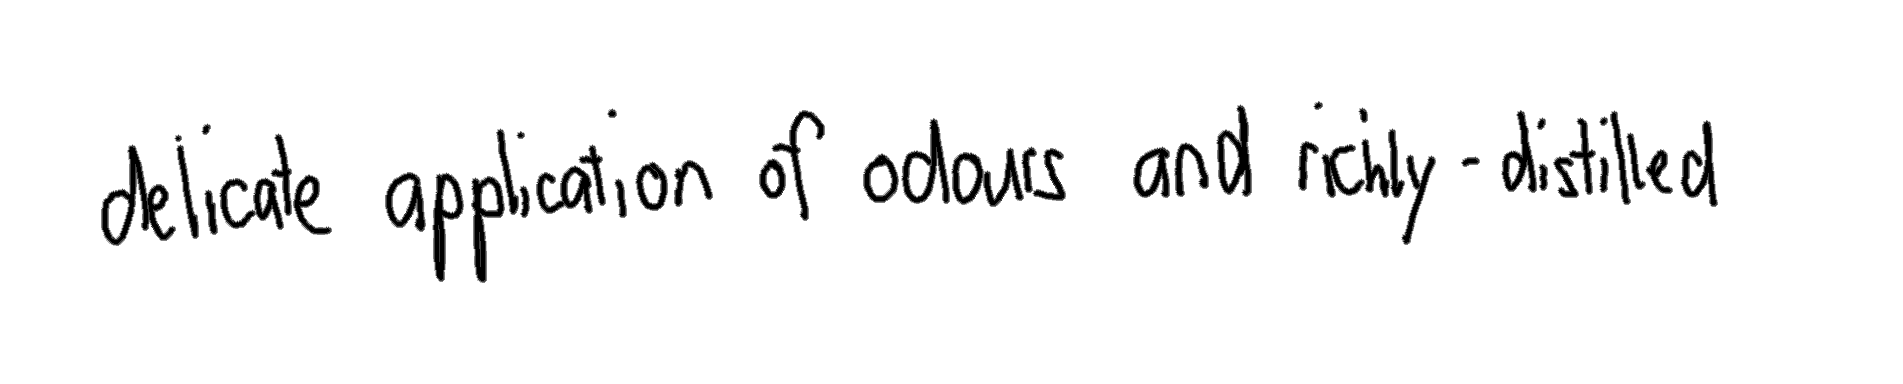 delicate application of odours and richly-distilled